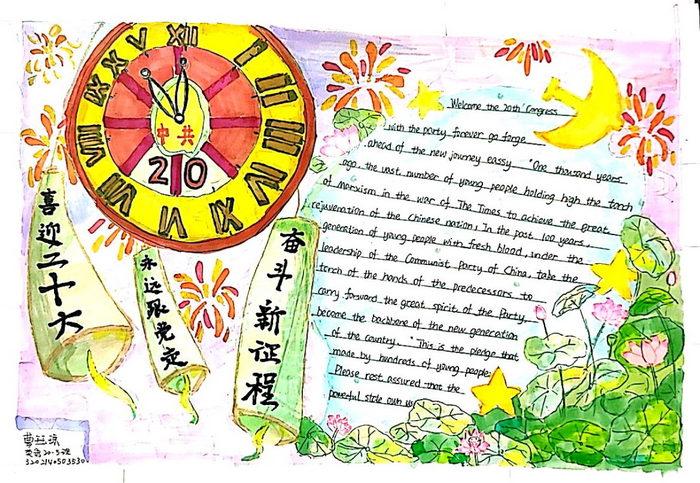 XII
I
II
III
IV
VI
VII
VIII
IX
X
中共
20
喜迎二十大
永远跟党走
奋斗新征程
Welcome the 20th Congress
with the party forever go forge
ahead of the new journey eassy "One thousand years
ago, the vast number of young people holding high the torch
of marxism in the war of The Times to achieve the great
rejuvenation of the Chinese nation; In the past 100 years,
generation of young people with fresh blood, under the
leadership of the Communist Party of China, take the
torch of the hands of the predecessors to
carry forward the great spirit of the Party,
become the backbone of the new generation
of the country. "This is the pledge that
made by hundreds of young people
Please rest assured that the
powerful strole own us
英语20-5班